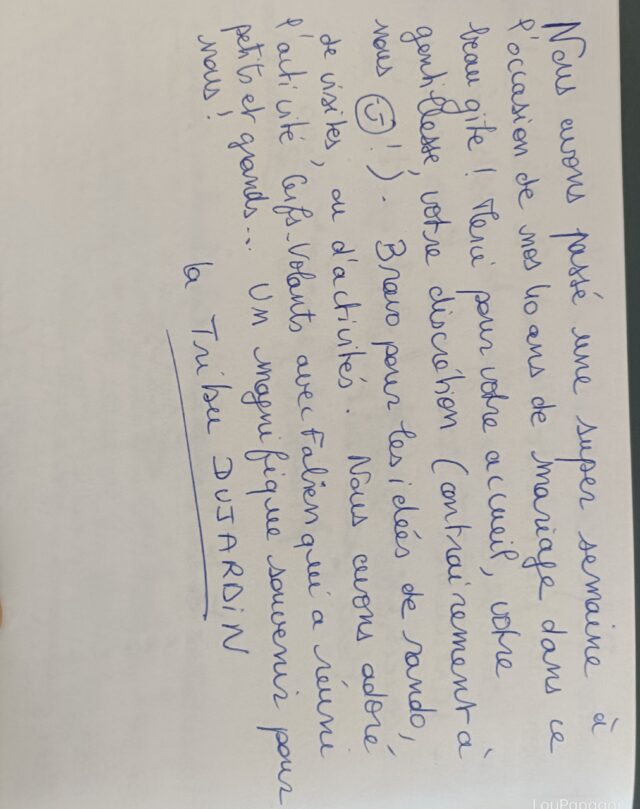 Nous avons passé une super semaine à
l'occasion de nos 40 ans de mariage dans ce
beau gite! Merci pour votre accueil, votre
gentillesse, votre discrétion (contrairement à
nous 😉!). Bravo pour les idées de rando,
de visites, ou d'activités. Nous avons adoré
l'activité Cerfs-Volants avec Fabien qui a réuni
petits et grands... Un magnifique souvenir pour
nous!
la Tribu DUJARDiN
LouPapagai